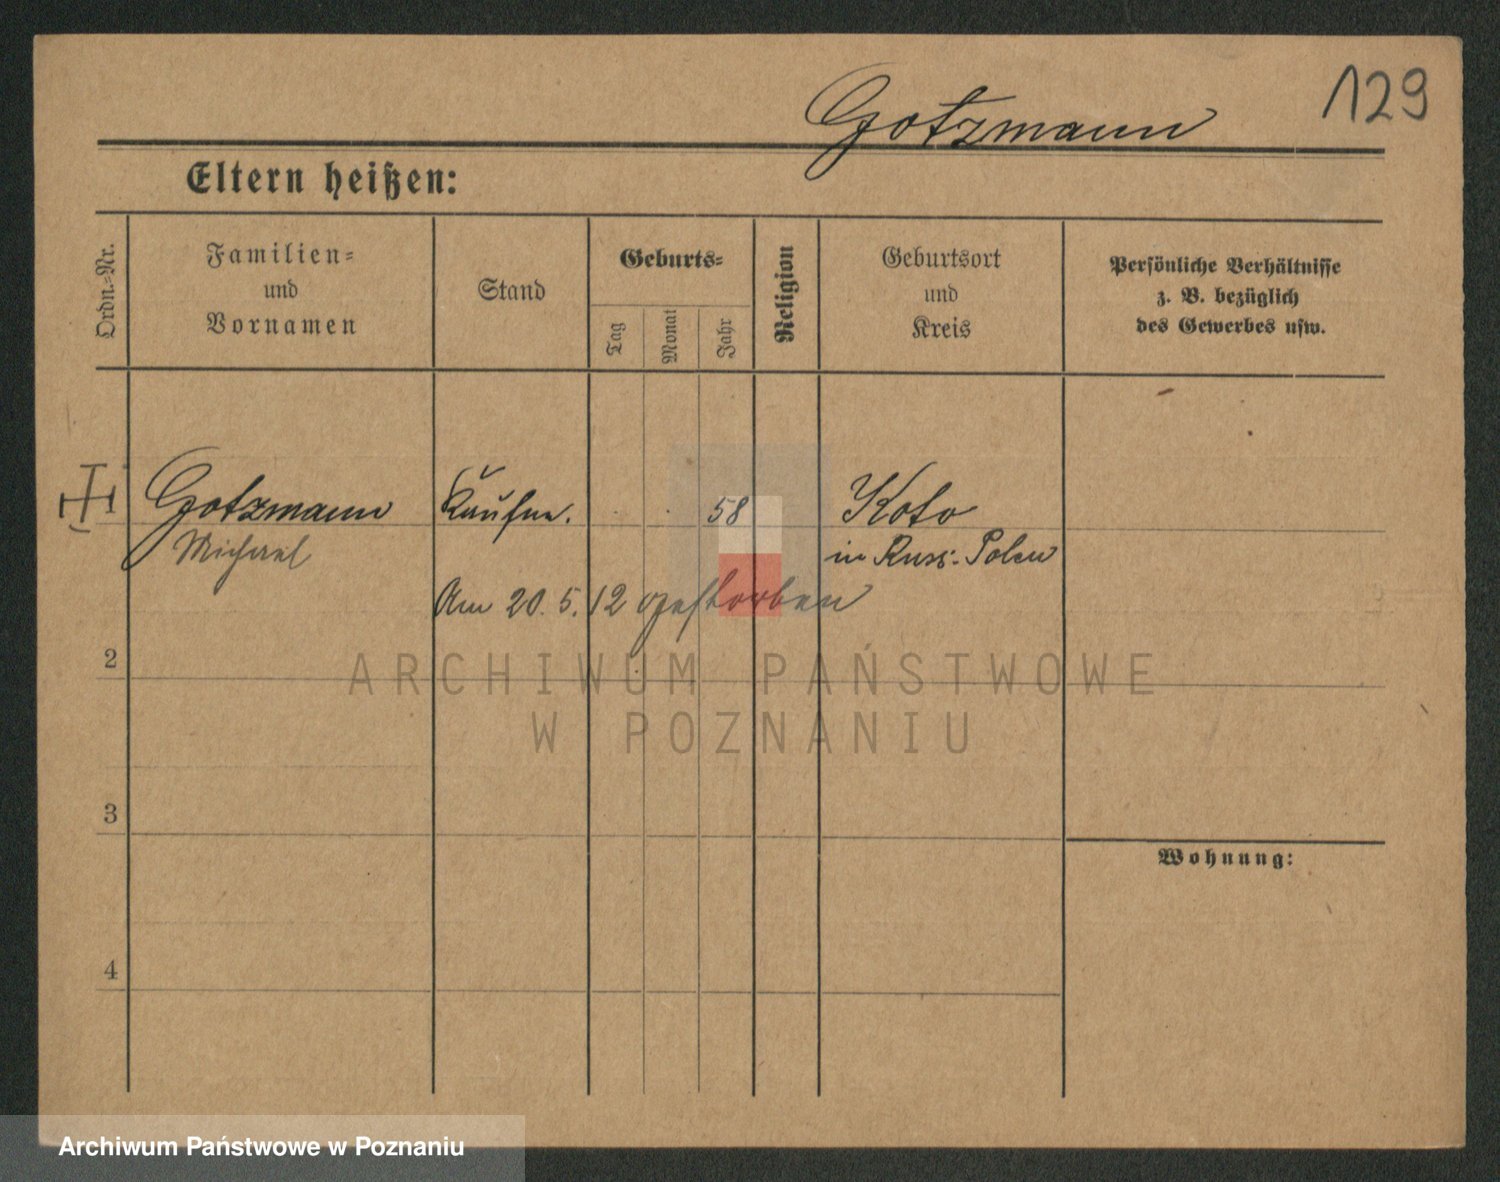 Gotzmann
129
Eltern heißen:
Ordn.-Nr.
Familien-
und
Vornamen
Stand
Geburts-
Tag
Monat
Jahr
Religion
Geburtsort
und
Kreis
Persönliche Verhältnisse
z. B. bezüglich
des Gewerbes usw.
Gotzmann
Michael
Kaufm.
58
Koło
in Russ. Polen
Am 20. 5. 12 gestorben
2
3
4
Wohnung:
ARCHIWUM PAŃSTWOWE
W POZNANIU
Archiwum Państwowe w Poznaniu